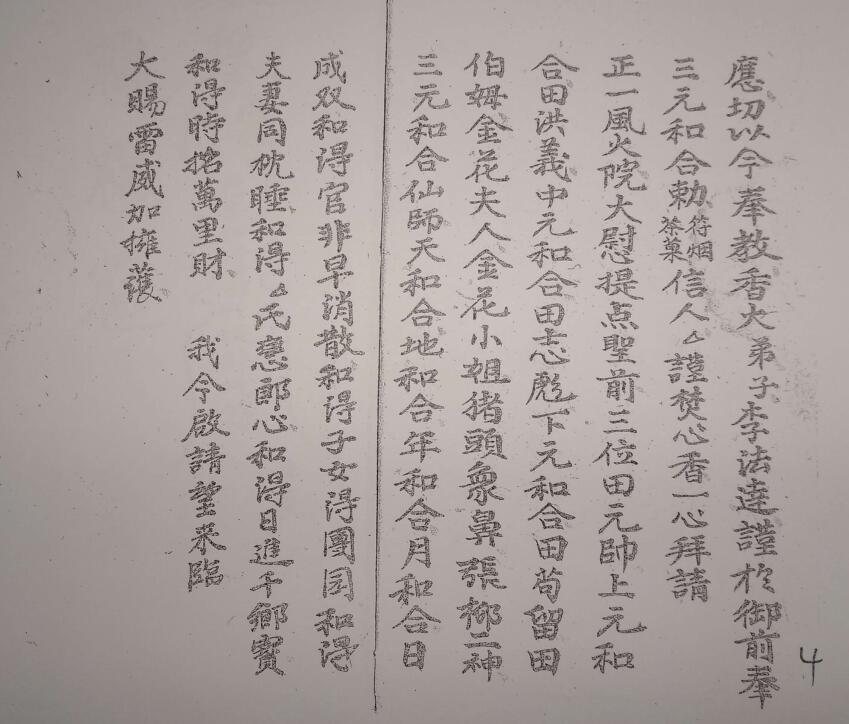 應切以今奉教香火弟子李法達謹於御前奉
三元和合勅符烟茶菓信人厶謹焚心香一心拜請
正一風火院大慰提点聖前三位田元帥上元和
合田洪義中元和合田志彪下元和合田苟留田
伯姆金花夫人金花小姐猪頭象鼻張柳二神
三元和合仙師天和合地和合年和合月和合日
成双和得官非早消散和得子女得團圆和得
夫妻同枕睡和得厶氏戀郎心和得日進千鄉寳
和得時招萬里財 我今啟請望来臨
大賜雷威加擁護
4